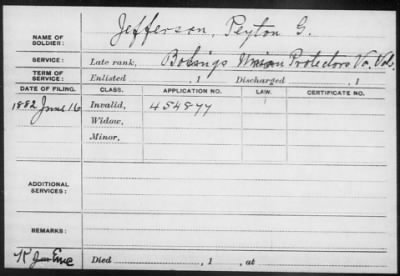 NAME OF SOLDIER: Jefferson, Peyton G.
SERVICE: Late rank, Union Protectors Va. Vol.
TERM OF SERVICE: Enlisted , 1 Discharged , 1
DATE OF FILING. CLASS. APPLICATION NO. LAW. CERTIFICATE NO.
1882 June 16 Invalid, 454877
Widow,
Minor,
ADDITIONAL SERVICES:
REMARKS:
Died , 1 , at